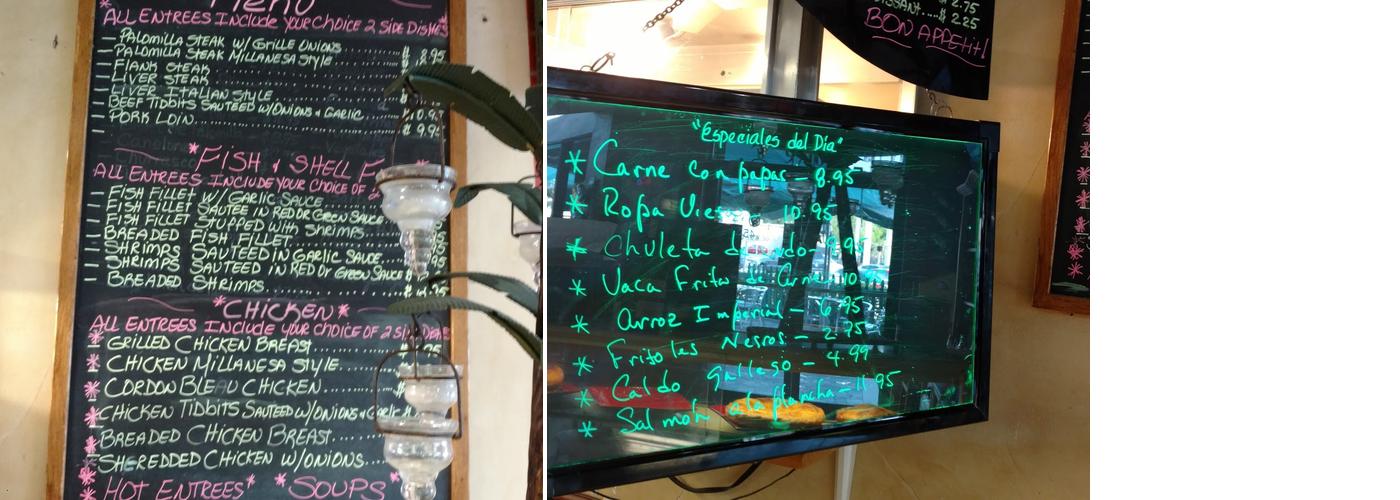 Menu
ALL ENTREES INCLUDE YOUR CHOICE 2 SIDE DISHES
- PALOMILLA STEAK W/ GRILLE ONIONS $ 8.95
- PALOMILLA STEAK MILLANESA STYLE
- FLANK STEAK
- LIVER STEAK
- LIVER ITALIAN STYLE
- BEEF TIDBITS SAUTEED W/ONIONS & GARLIC
- PORK LOIN
*FISH & SHELL
ALL ENTREES INCLUDE YOUR CHOICE OF 2
- FISH FILLET W/ GARLIC SAUCE
- FISH FILLET SAUTEE IN RED OR GREEN SAUCE
- FISH FILLET STUPPED WITH SHRIMPS
- BREADED FISH FILLET
- SHRIMPS SAUTEED IN GARLIC SAUCE
- SHRIMPS SAUTEED IN RED OR GREEN SAUCE
- BREADED SHRIMPS
*CHICKEN*
ALL ENTREES INCLUDE YOUR CHOICE OF 2 SIDE
* GRILLED CHICKEN BREAST
* CHICKEN MILLANESA STYLE
* CORDON BLEAU CHICKEN
* CHICKEN TIDBITS SAUTEED W/ONIONS & GARLIC
* BREADED CHICKEN BREAST
* SHEREDDED CHICKEN W/ONIONS
* HOT ENTREES* *SOUPS*
$ 2.75
$ 2.25
BON APPETIT!
"Especiales del Dia"
* Carne con papas - 8.95
* Ropa - 10.95
* Chuleta
* Vaca Frita de Carne
* Arroz Imperial - 6.95
Frijoles Negros - 2.75
* Caldo gallego - 4.99
* Salmon a la plancha - 11.95